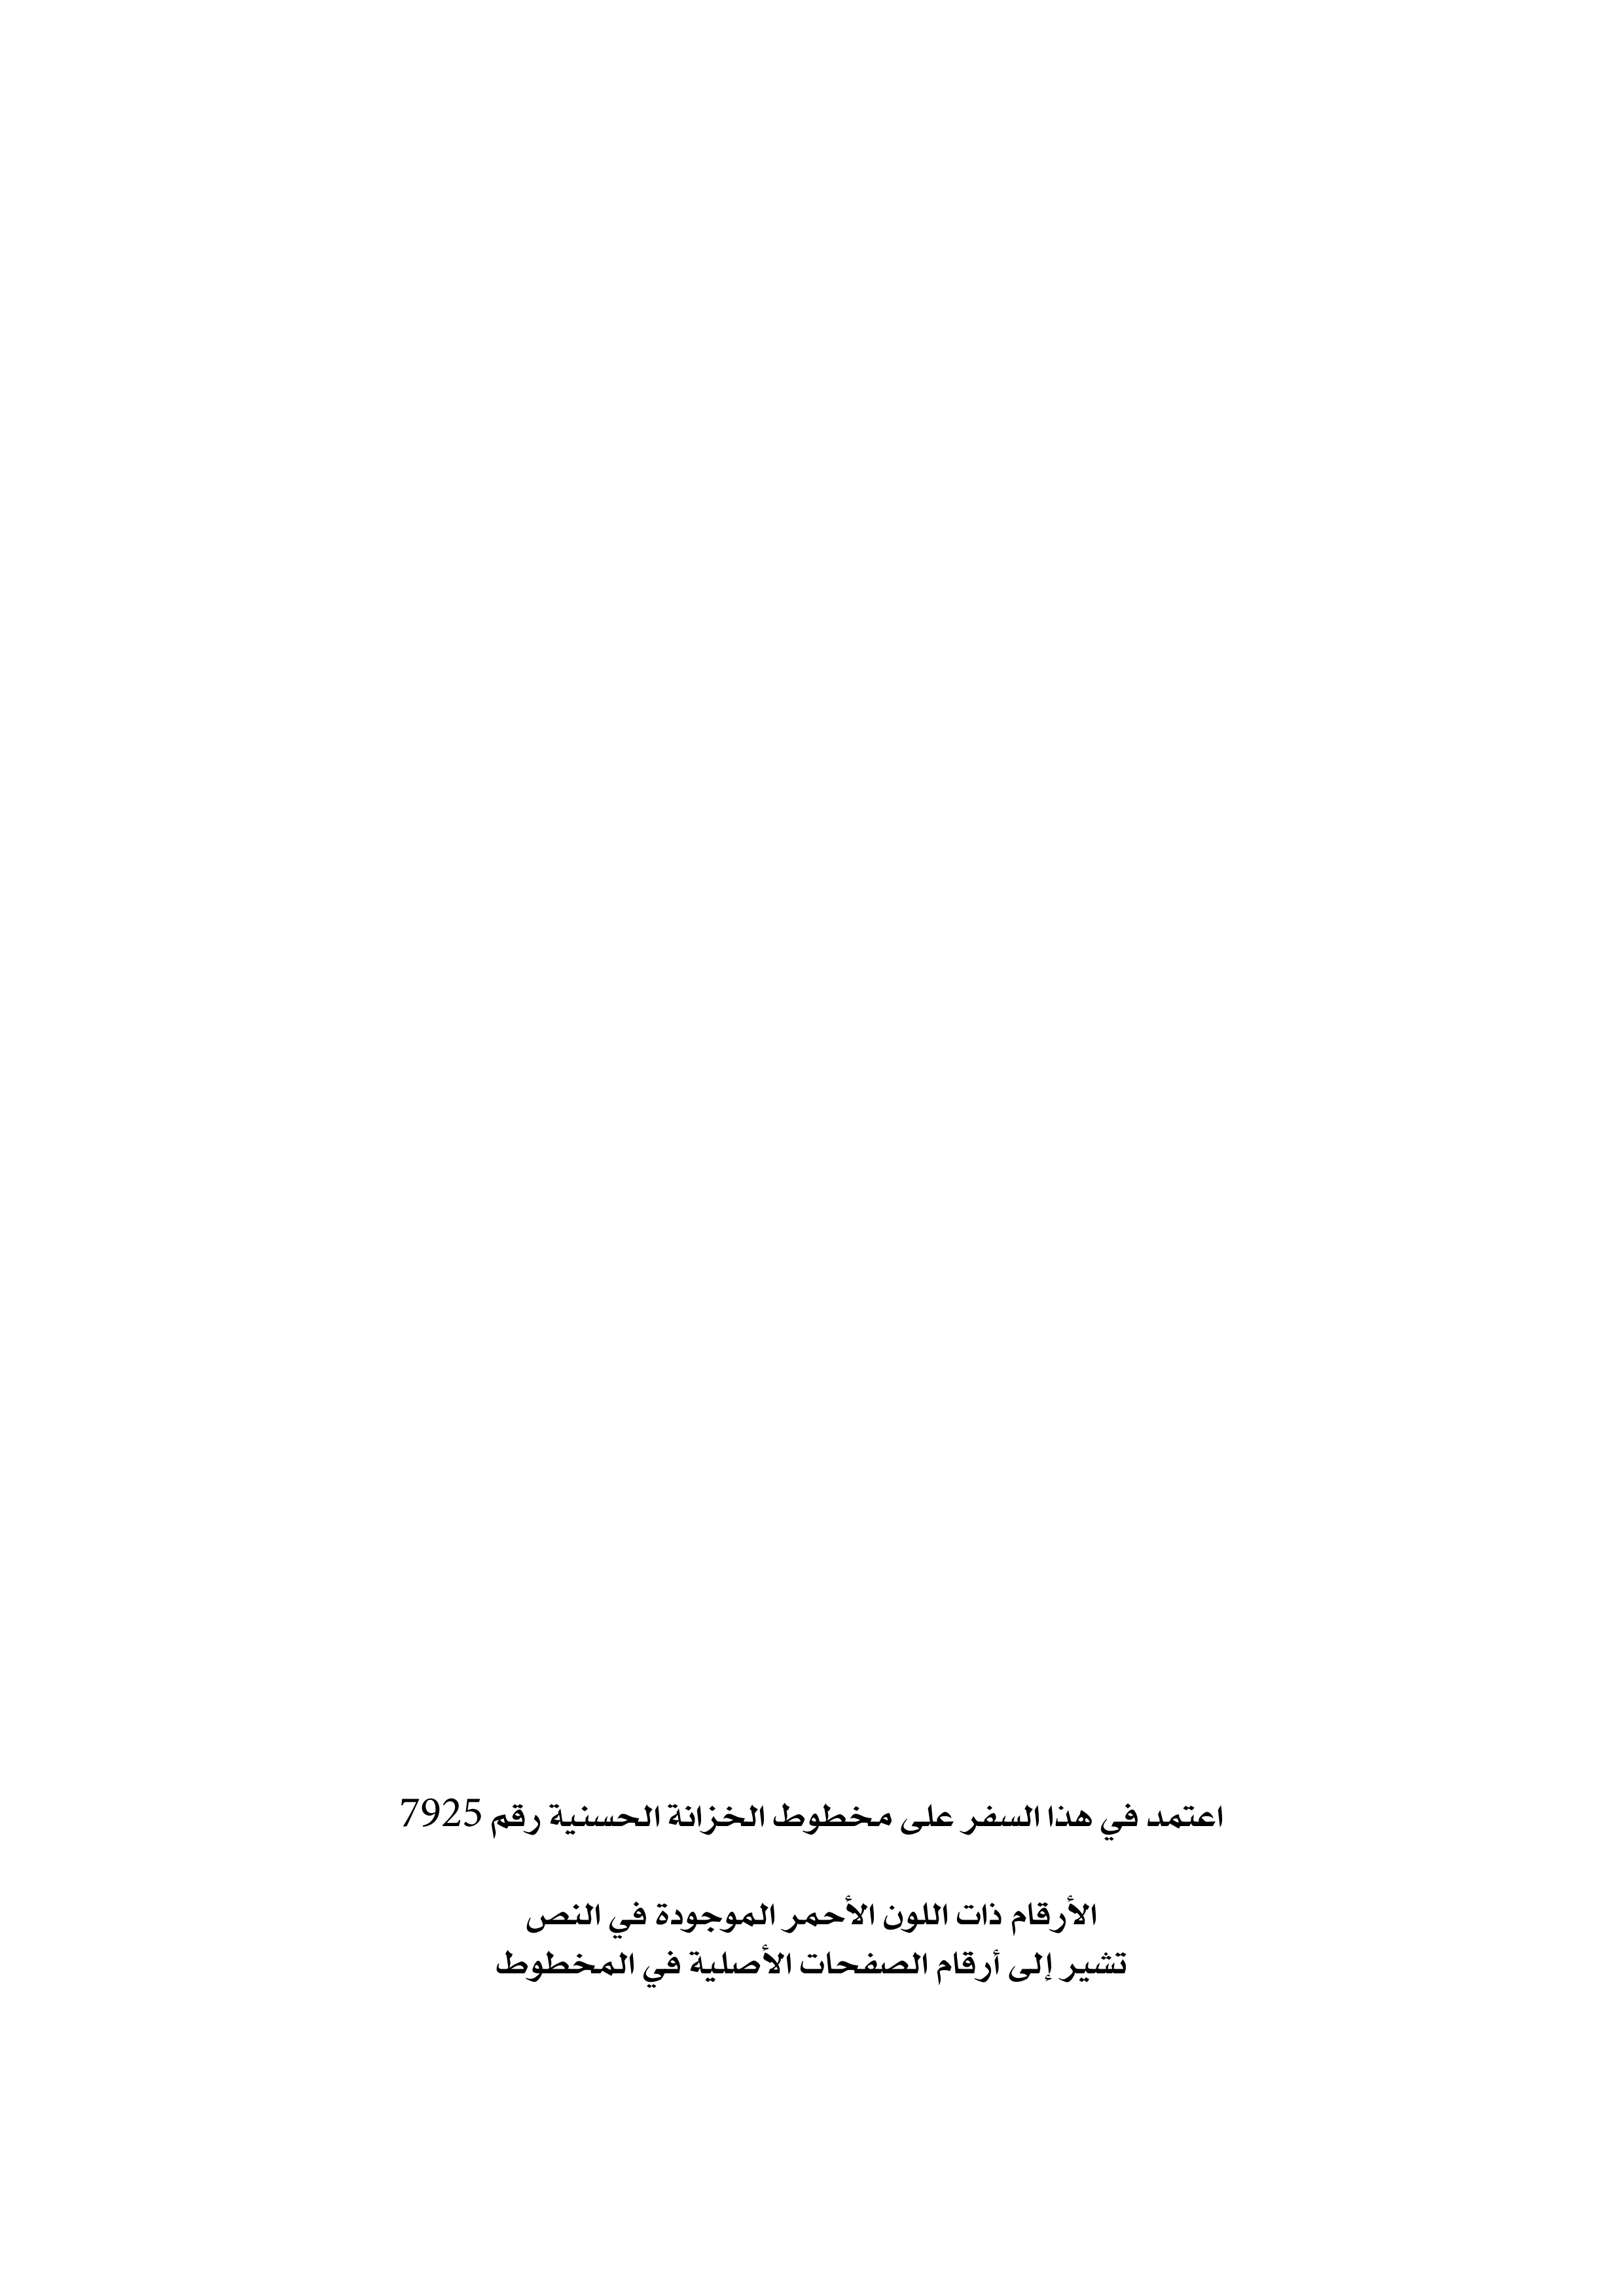 اعتمد في هذا السفر على مخطوط الخزانة الحسنية رقم 7925
الأرقام ذات اللون الأحمر الموجودة في النص
تشير إلى أرقام الصفحات الأصلية في المخطوط